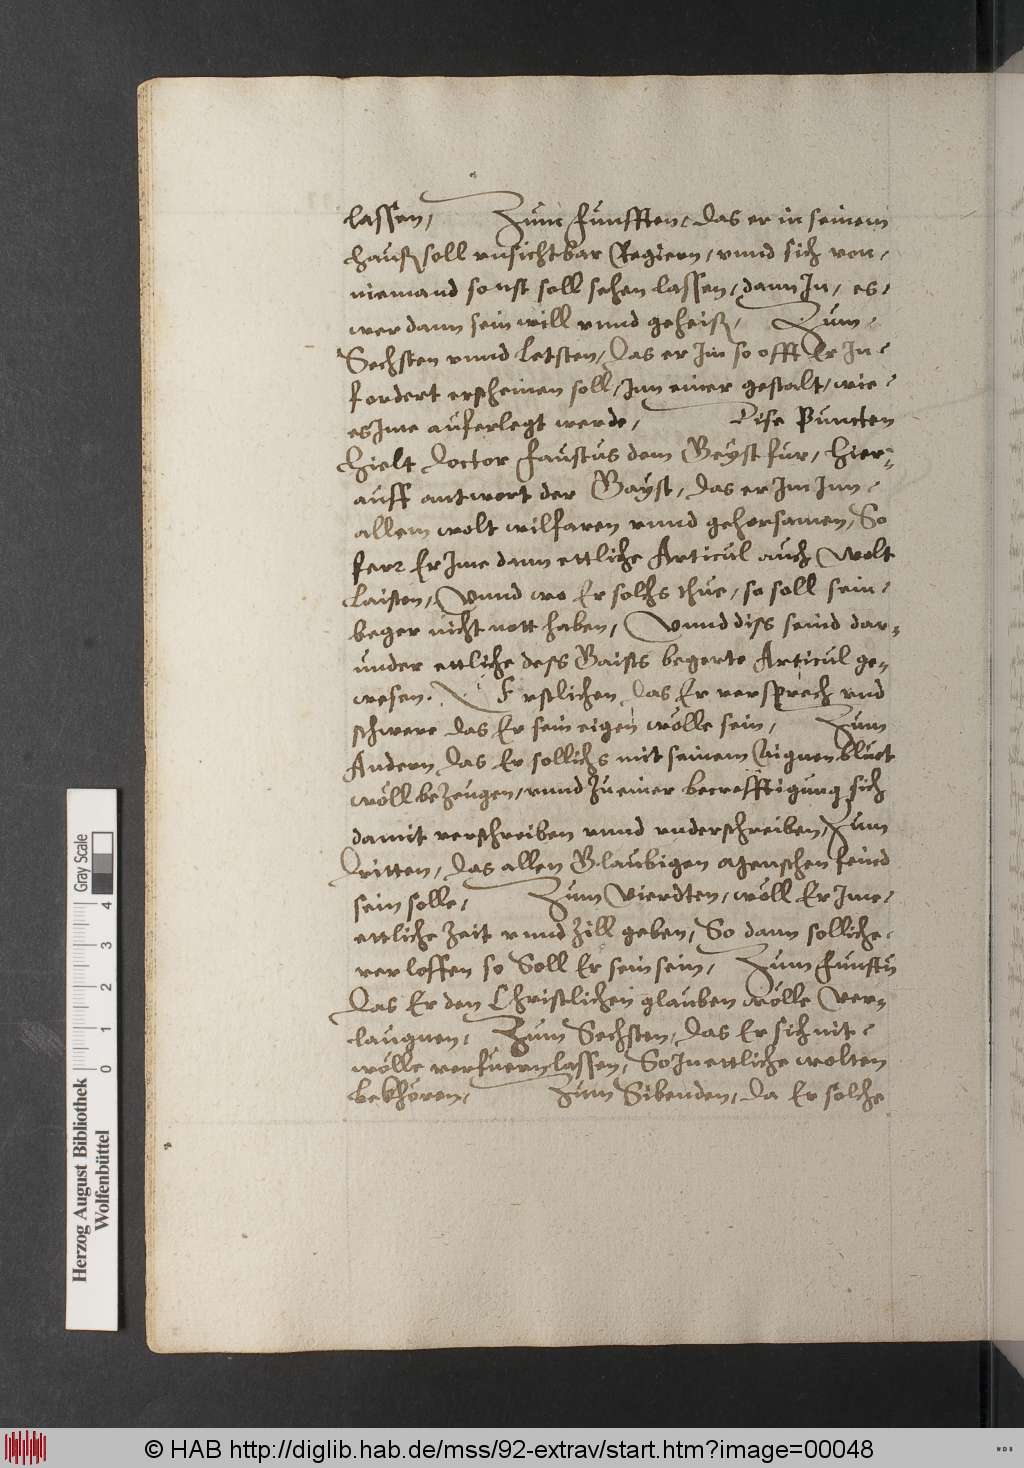 lassen/ Zum Funfften/ das er in seinem
Hauß soll vnsichtbar Regiern/ vnnd sich von/
niemand sonst soll sehen lassen/ dann In/ es/
wer dann sein will vnnd geheiß/ Zum/
Sechsten vnnd Letsten/ das er Im so offt Er In/
fordert erscheinen soll/ Inn einer gestalt/ wie/
es Ime auferlegt werde/ Dise Puncten
Hielt doctor Faustus dem Geyst fur/ Hier-/
auff antwort der Gayst/ das er Im Inn/
allem wolt wilfaren vnnd gehorsamen/ So
ferr Er Ime dann ettliche Articul auch Wolt
Laisten/ Vnnd wo Er solchs thue/ so soll sein/
beger nicht nott haben/ Vnnd diss seind dar-/
under ettliche dess Gaists begerte Articul ge-/
wesen. Erstlichen das Er versprech vnd
schwere das Er sein eigen wölle sein/ Zum
Andern das Er sollichs mit seinem Aignen bluet
wöll beZeugen/ vnnd Zu einer becrefftigung sich
damit verschreiben vnnd vnderschreiben/ Zum
dritten/ das allen Glaubigen Menschen feind
sein solle/ Zum Vierdten/ wöll Er Ime/
ettliche Zeit vnnd Zill geben/ So dann solliche/
verloffen so Soll Er sein sein/ Zum Funfftn
Das Er den Christlichen glauben wölle Ver-/
laugnen/ Zum Sechsten/ das Er sich nit/
wölle verfuern lassen/ So In ettliche wolten
bekhören/ Zum Sibenden/ da Er solche
Herzog August Bibliothek
Wolfenbüttel
0 1 2 3 4
Gray Scale
© HAB http://diglib.hab.de/mss/92-extrav/start.htm?image=00048
WDB